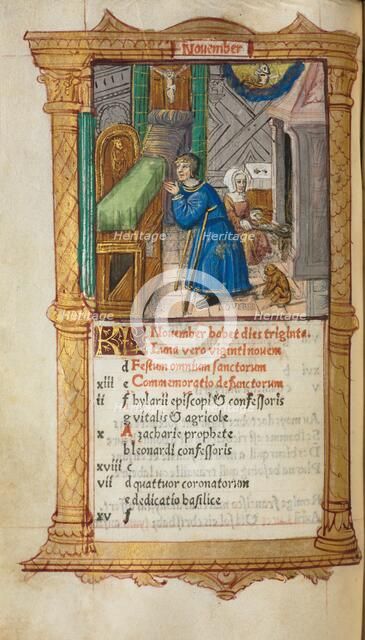 November
KL November habet dies triginta.
Luna vero viginti novem
d Festum omnium sanctorum
xiii e Commemoratio defunctorum
ii f hylarii episcopi & confessoris
g vitalis & agricole
x A zacharie prophete
b leonardi confessoris
xviii c
vii d quattuor coronatorum
e dedicatio basilice
xv f